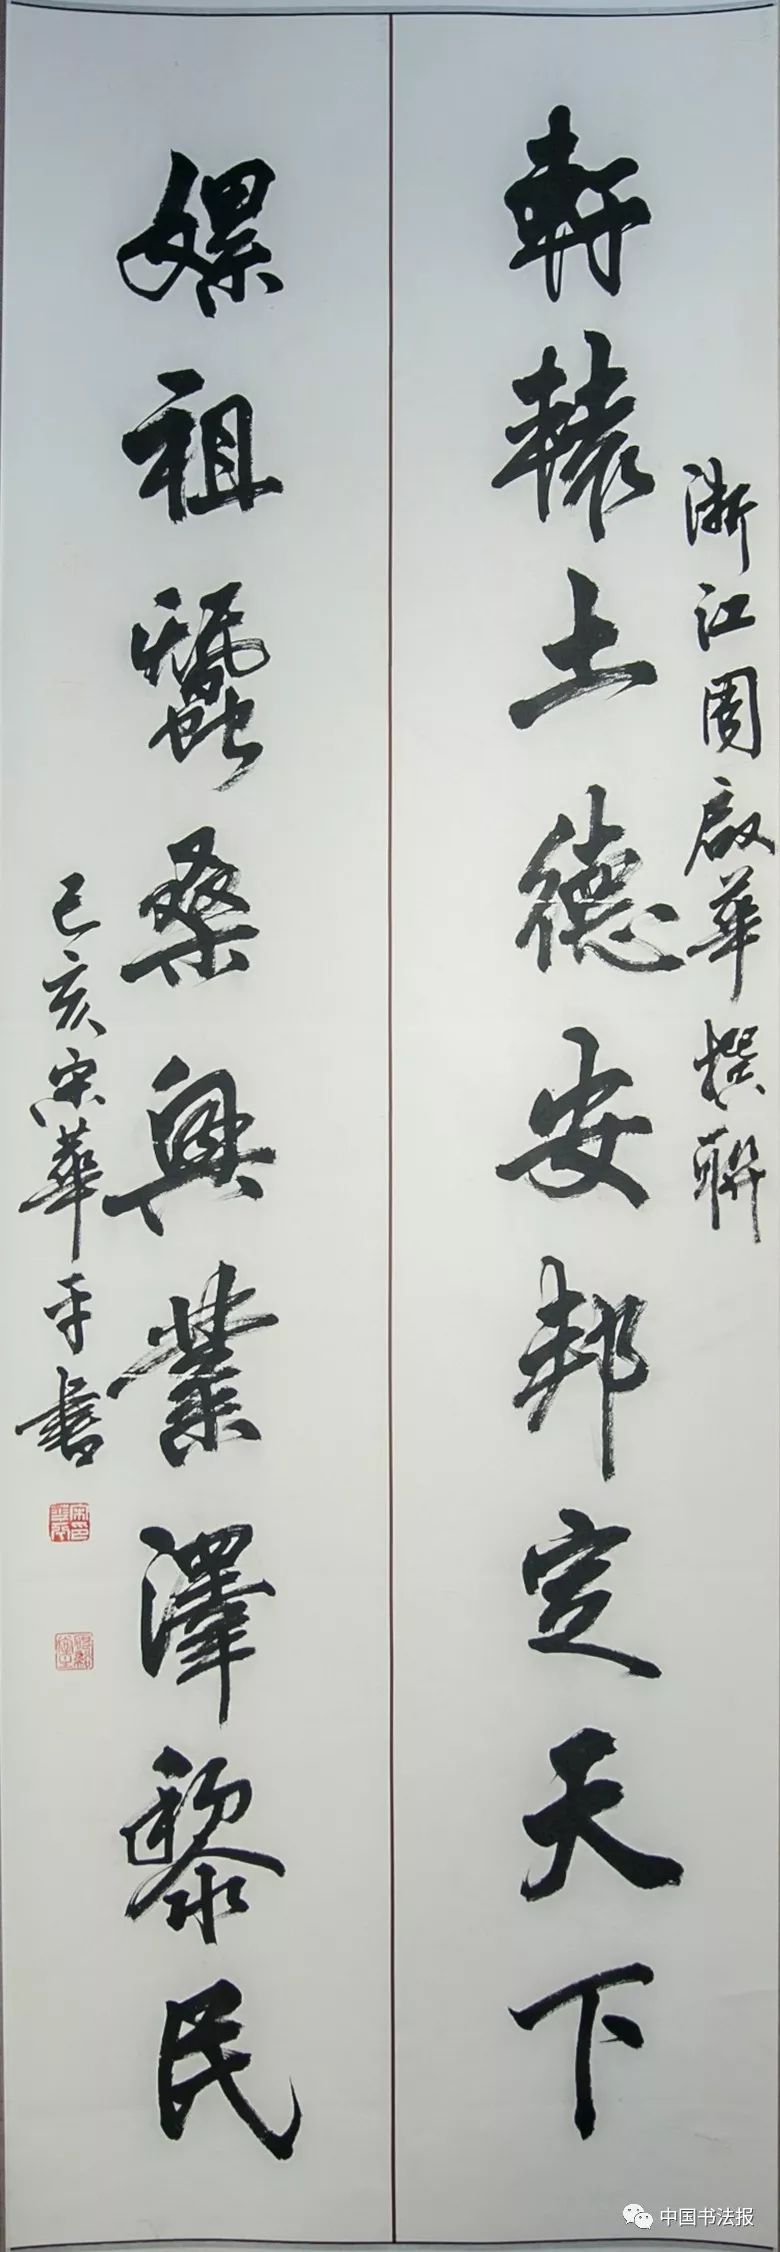 軒轅土德安邦定天下
浙江周啟華撰聯
嫘祖蠶桑興業澤黎民
己亥宋華平書
中国书法报